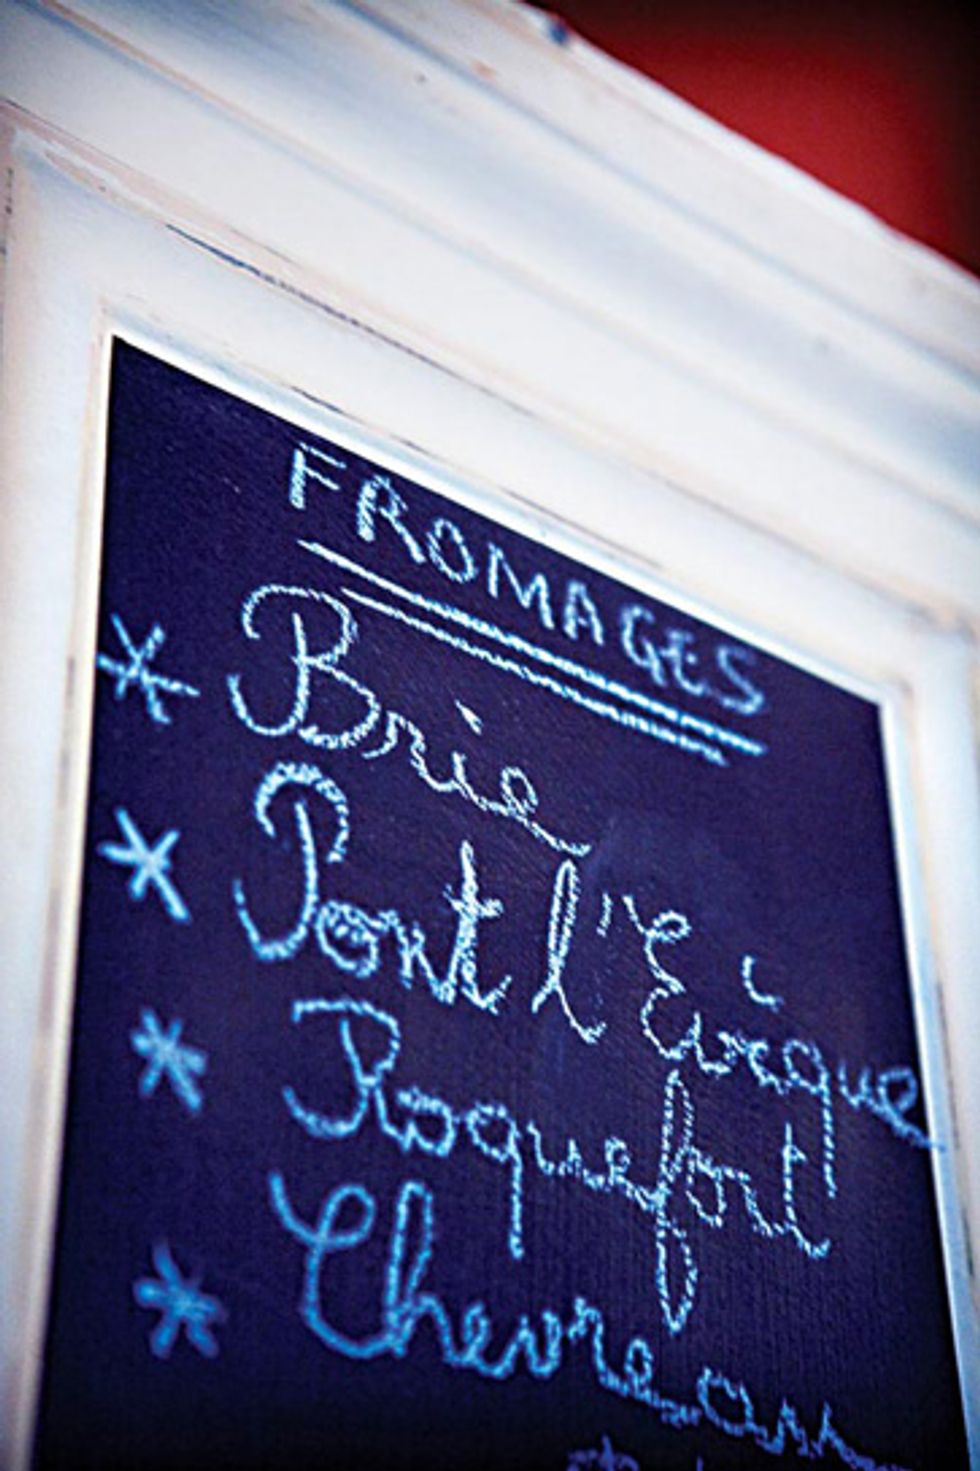 FROMAGES
* Brie
* Pont l'Evêque
* Roquefort
* Chevre